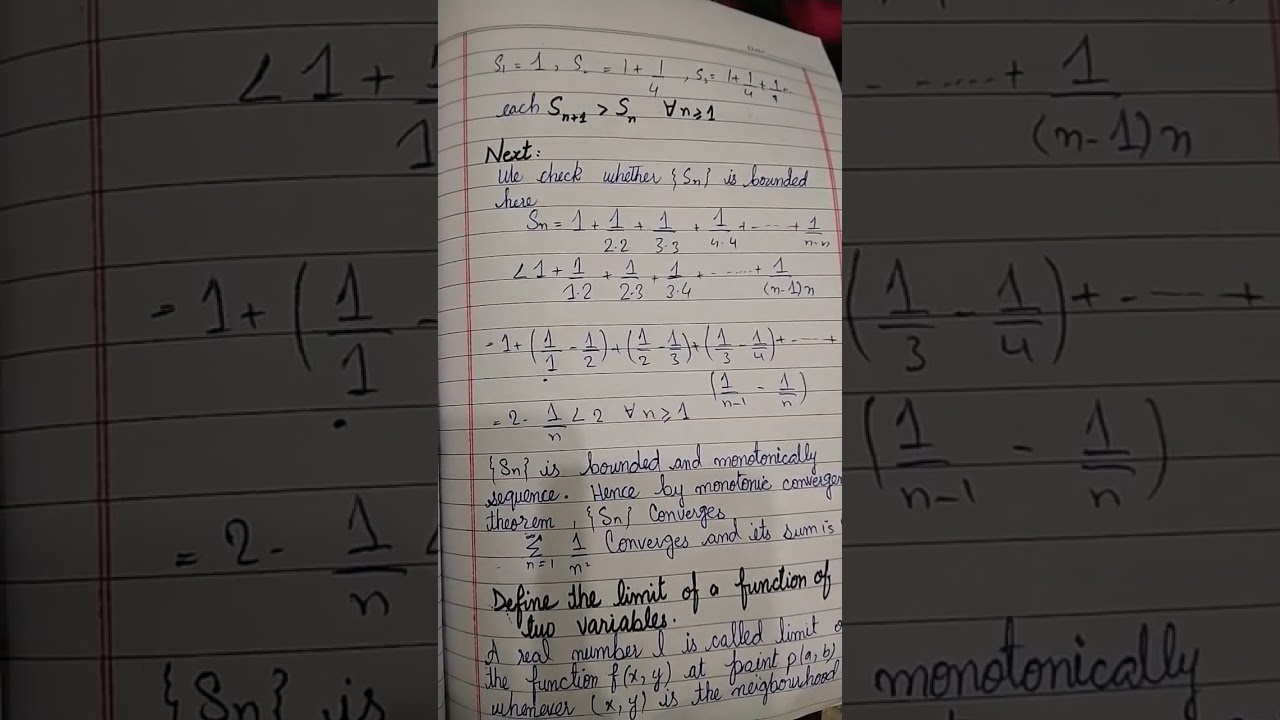 Date
S₁ = 1, S = 1 + 1/4, S₃ = 1 + 1/4 + 1/9
each Sₙ₊₁ > Sₙ ∀ n ≥ 1
Next:
We check whether {Sₙ} is bounded
here
Sₙ = 1 + 1/2·2 + 1/3·3 + 1/4·4 + ---- + 1/n·n
< 1 + 1/1·2 + 1/2·3 + 1/3·4 + ------ + 1/(n-1)n
= 1 + (1/1 - 1/2) + (1/2 - 1/3) + (1/3 - 1/4) + ---- +
(1/n-1 - 1/n)
= 2 - 1/n < 2 ∀ n ≥ 1
{Sₙ} is bounded and monotonically
sequence. Hence by monotonic convergen
theorem, {Sₙ} Converges
∞ Σ n=1 1/n² Converges and its sum is
Define the limit of a function of
two variables.
A real number l is called limit o
the function f(x,y) at point p(a,b)
whenever (x,y) is the neigbourhood